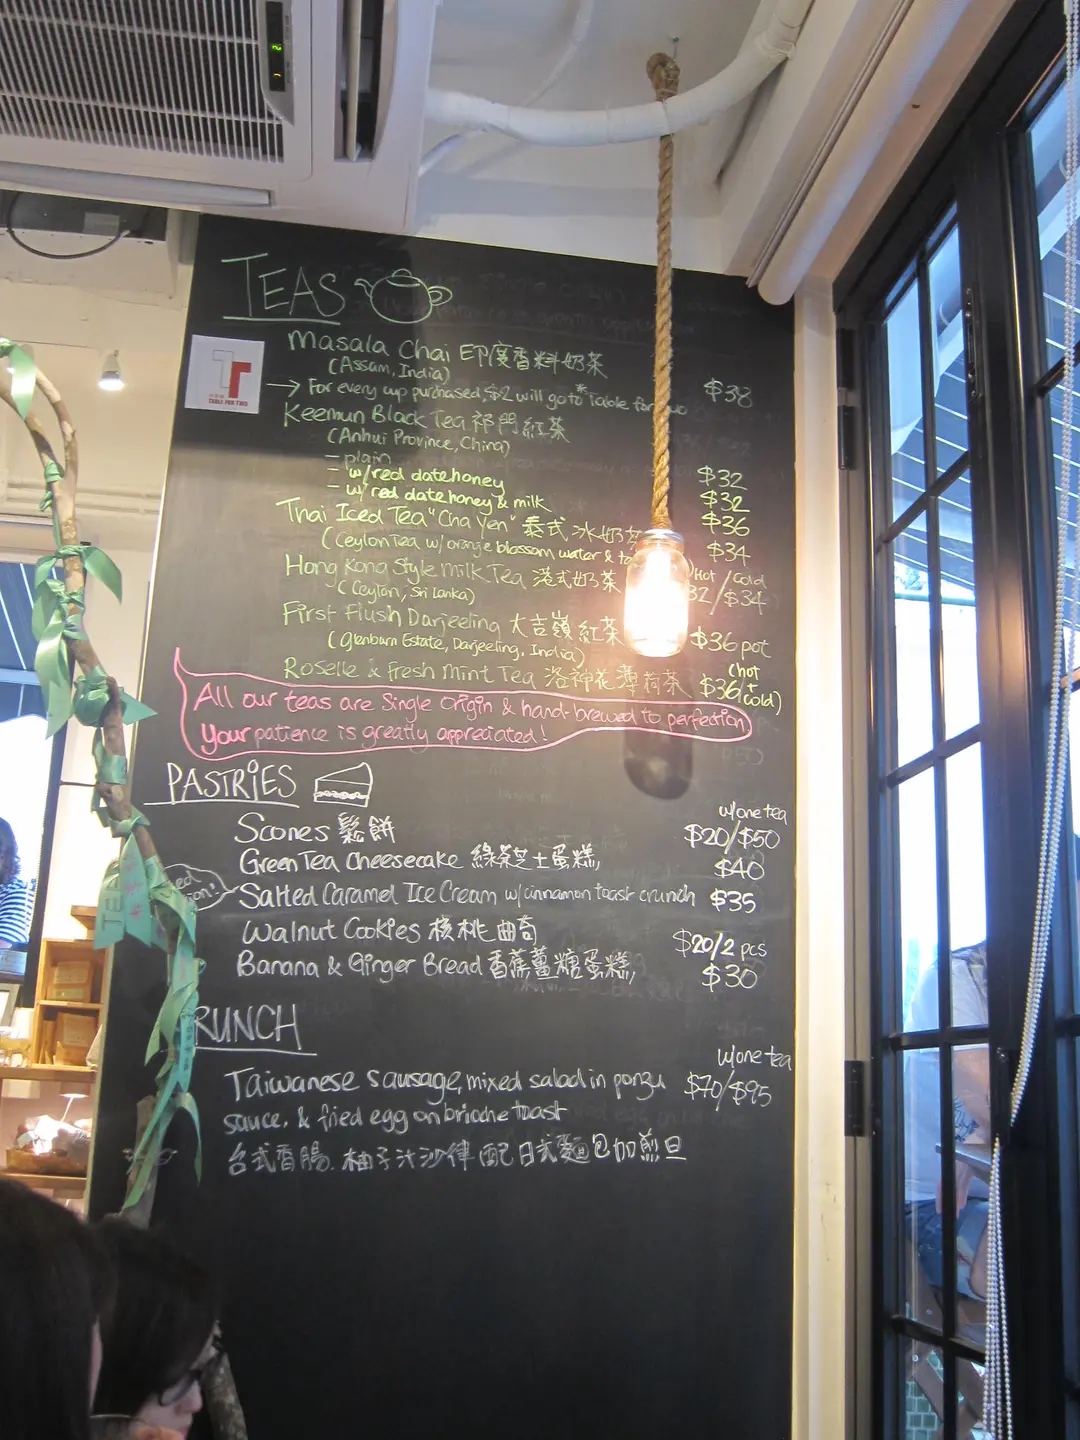 TEAS
masala Chai 印度香料奶茶
(Assam, India) $38
TABLE FOR TWO
→ For every cup purchased, $2 will go to "Table for Two
Keemun Black Tea 祁門紅茶
(Anhui Province, China)
- plain $32
- w/ red date honey $32
- w/ red date honey & milk $36
Thai Iced Tea "Cha Yen" 泰式冰奶茶 $34
(Ceylon Tea w/ orange blossom water &
Hong Kong Style Milk Tea 港式奶茶 Hot / Cold
(Ceylon, Sri Lanka) 32/$34
First Flush Darjeeling 大吉嶺紅茶 $36 pot
(Glenburn Estate, Darjeeling, India)
Roselle & Fresh Mint Tea 洛神花薄荷茶 $36 (hot + cold)
All our teas are Single Origin & hand-brewed to perfection,
Your patience is greatly appreciated!
PASTRIES
w/one tea
Scones 鬆餅 $20/$50
Green Tea Cheesecake 綠茶芝士蛋糕 $40
Salted Caramel Ice Cream w/ cinnamon toast crunch $35
Walnut Cookies 核桃曲奇 $20/2 pcs
Banana & Ginger Bread 香蕉薑糖蛋糕 $30
RUNCH
w/one tea
Taiwanese sausage, mixed salad in ponzu $70/$95
sauce, & fried egg on brioche toast
台式香腸.柚子汁沙律配日式麵包加煎旦